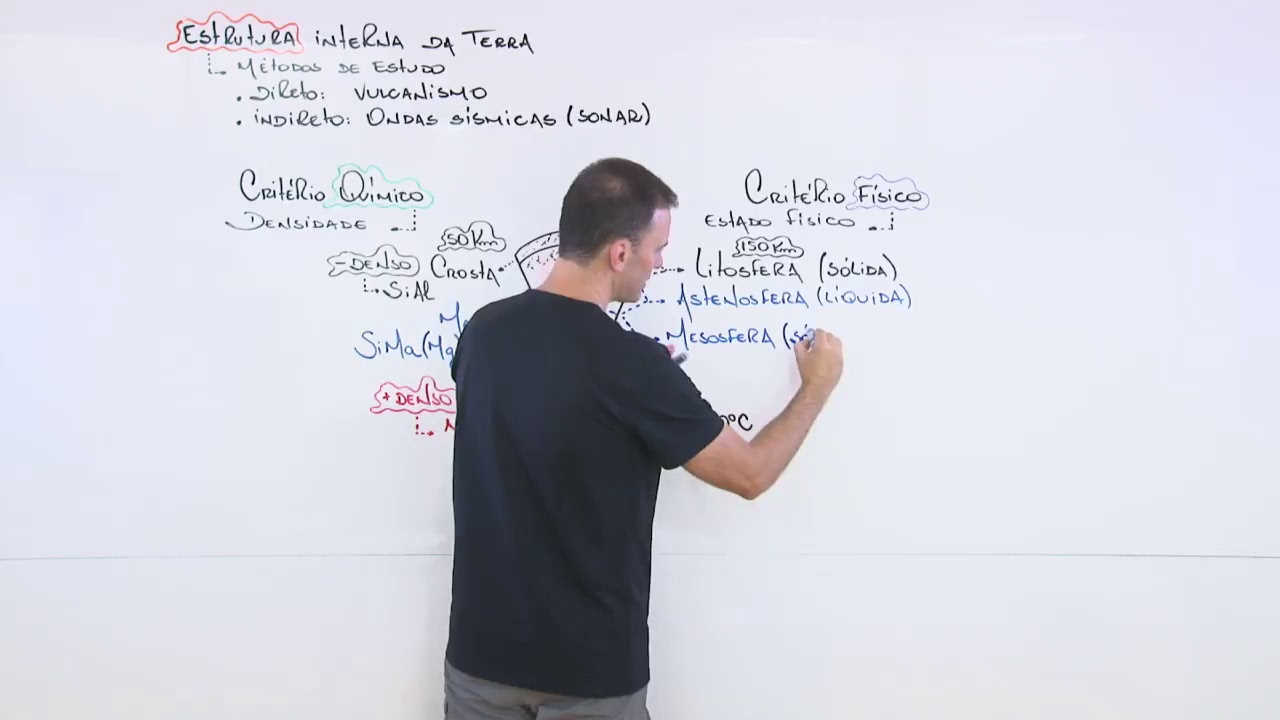 Estrutura interna da Terra
Métodos de Estudo
. Direto: Vulcanismo
. indireto: Ondas sísmicas (sonar)
Critério Químico
Densidade
50 Km
- Denso Crosta
SiAl
SiMa (Mg)
+ Denso
Critério Físico
Estado físico
150 Km
Litosfera (sólida)
Astenosfera (líquida)
Mesosfera (só
°C